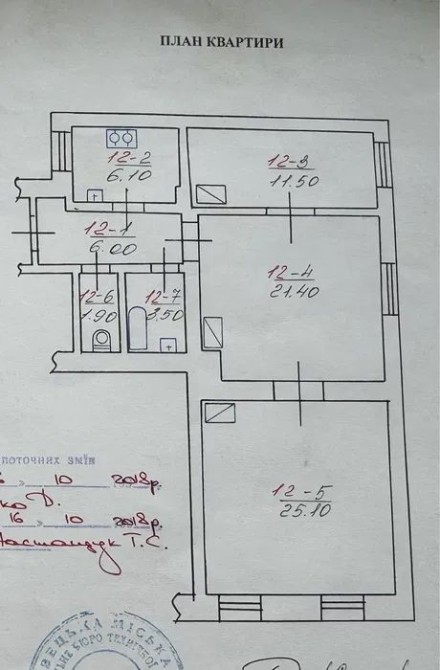 ПЛАН КВАРТИРИ
12-2
6.10
12-3
11.50
12-1
6.00
12-4
21.40
12-6
1.90
12-7
3.50
12-5
25.10
поточних змін
10 2018р.
Д.
16 10 2018р.
Т.С.
МІСЬКА
БЮРО